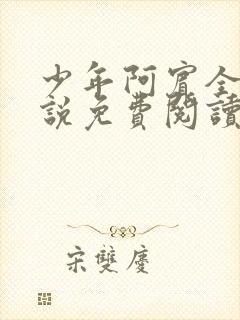 少年阿賓全
說免費閱讀
宋雙慶